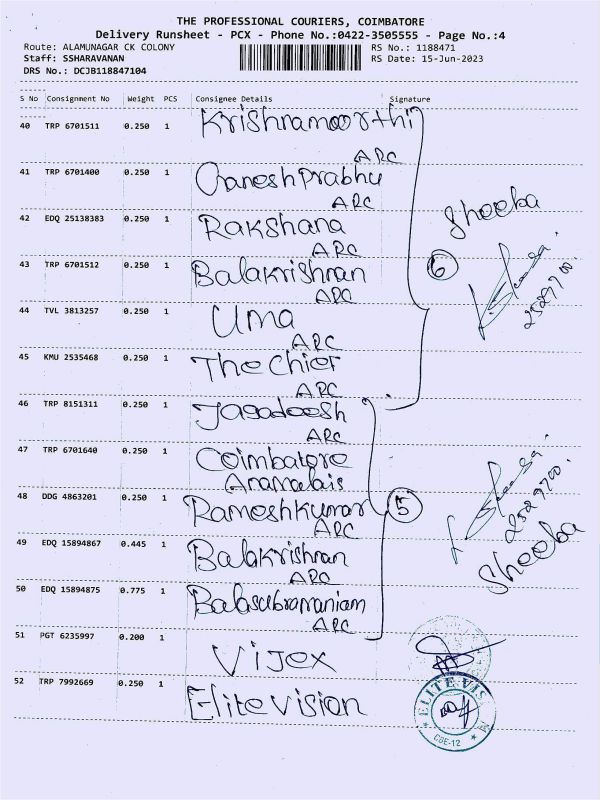 THE PROFESSIONAL COURIERS, COIMBATORE
Delivery Runsheet - PCX - Phone No.:0422-3505555 - Page No.:4
Route: ALAMUNAGAR CK COLONY
RS No.: 1188471
Staff: SSHARAVANAN
RS Date: 15-Jun-2023
DRS No.: DCJB118847104
S No Consignment No Weight PCS Consignee Details Signature
40 TRP 6701511 0.250 1 Krishnamoorthi
ARC
41 TRP 6701400 0.250 1 Ganesh Prabhu
ARC
Sheeba
42 EDQ 25138383 0.250 1 Rakshana
ARC
6
43 TRP 6701512 0.250 1 Balakrishnan
ARC
2529700.
44 TVL 3813257 0.250 1 Uma
ARC
45 KMU 2535468 0.250 1 The Chief
ARC
46 TRP 8151311 0.250 1 Jagadeesh
ARC
47 TRP 6701640 0.250 1 Coimbatore
Anamalais
48 DDG 4863201 0.250 1 Rameshkumar
ARC
5
2529700.
Sheeba
49 EDQ 15894867 0.445 1 Balakrishnan
ARC
50 EDQ 15894875 0.775 1 Balasubramaniam
ARC
51 PGT 6235997 0.200 1 Vijex
52 TRP 7992669 0.250 1 Elite vision
ELITE VIS
CBE-12